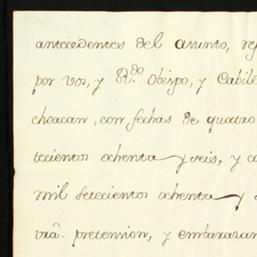 antecedentes del asunto,
por vos, y R.do Obispo, y Cabil
choacan, con fechas de quatro
tecientos ochenta y seis, y
mil setecientos ochenta y
vrâ. pretension, y embarazar